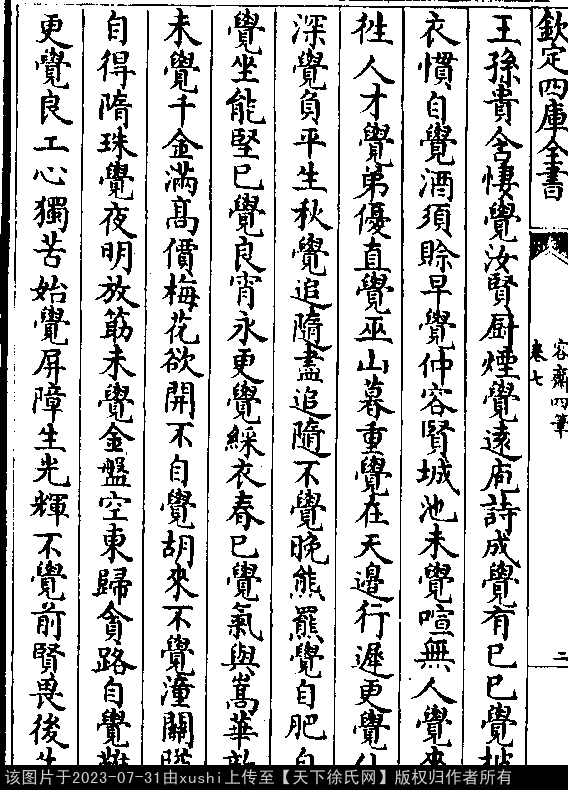 欽定四庫全書
容齋四筆
卷七
二
王孫貴含悽覺汝賢厨煙覺遠庖詩成覺有已已覺披
衣慣自覺酒須賖早覺仲容賢城池未覺喧無人覺來
徃人才覺弟優直覺巫山暮重覺在天邊行遲更覺仙
深覺負平生秋覺追隨盡追隨不覺晚熊羆覺自肥自
覺坐能堅已覺良宵永更覺綵衣春已覺氣與嵩華敵
未覺千金滿髙價梅花欲開不自覺胡來不覺潼關隘
自得隋珠覺夜明放筯未覺金盤空東歸貪路自覺難
更覺良工心獨苦始覺屏障生光輝不覺前賢畏後生
该图片于2023-07-31由xushi上传至【天下徐氏网】版权归作者所有